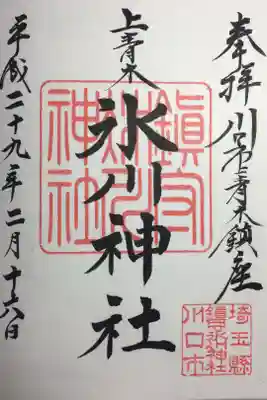 奉拝 川口市上青木鎮座
上青木
氷川神社
平成二十九年二月十六日
鎮守氷川神社
埼玉縣
鎮守氷川神社
川口市